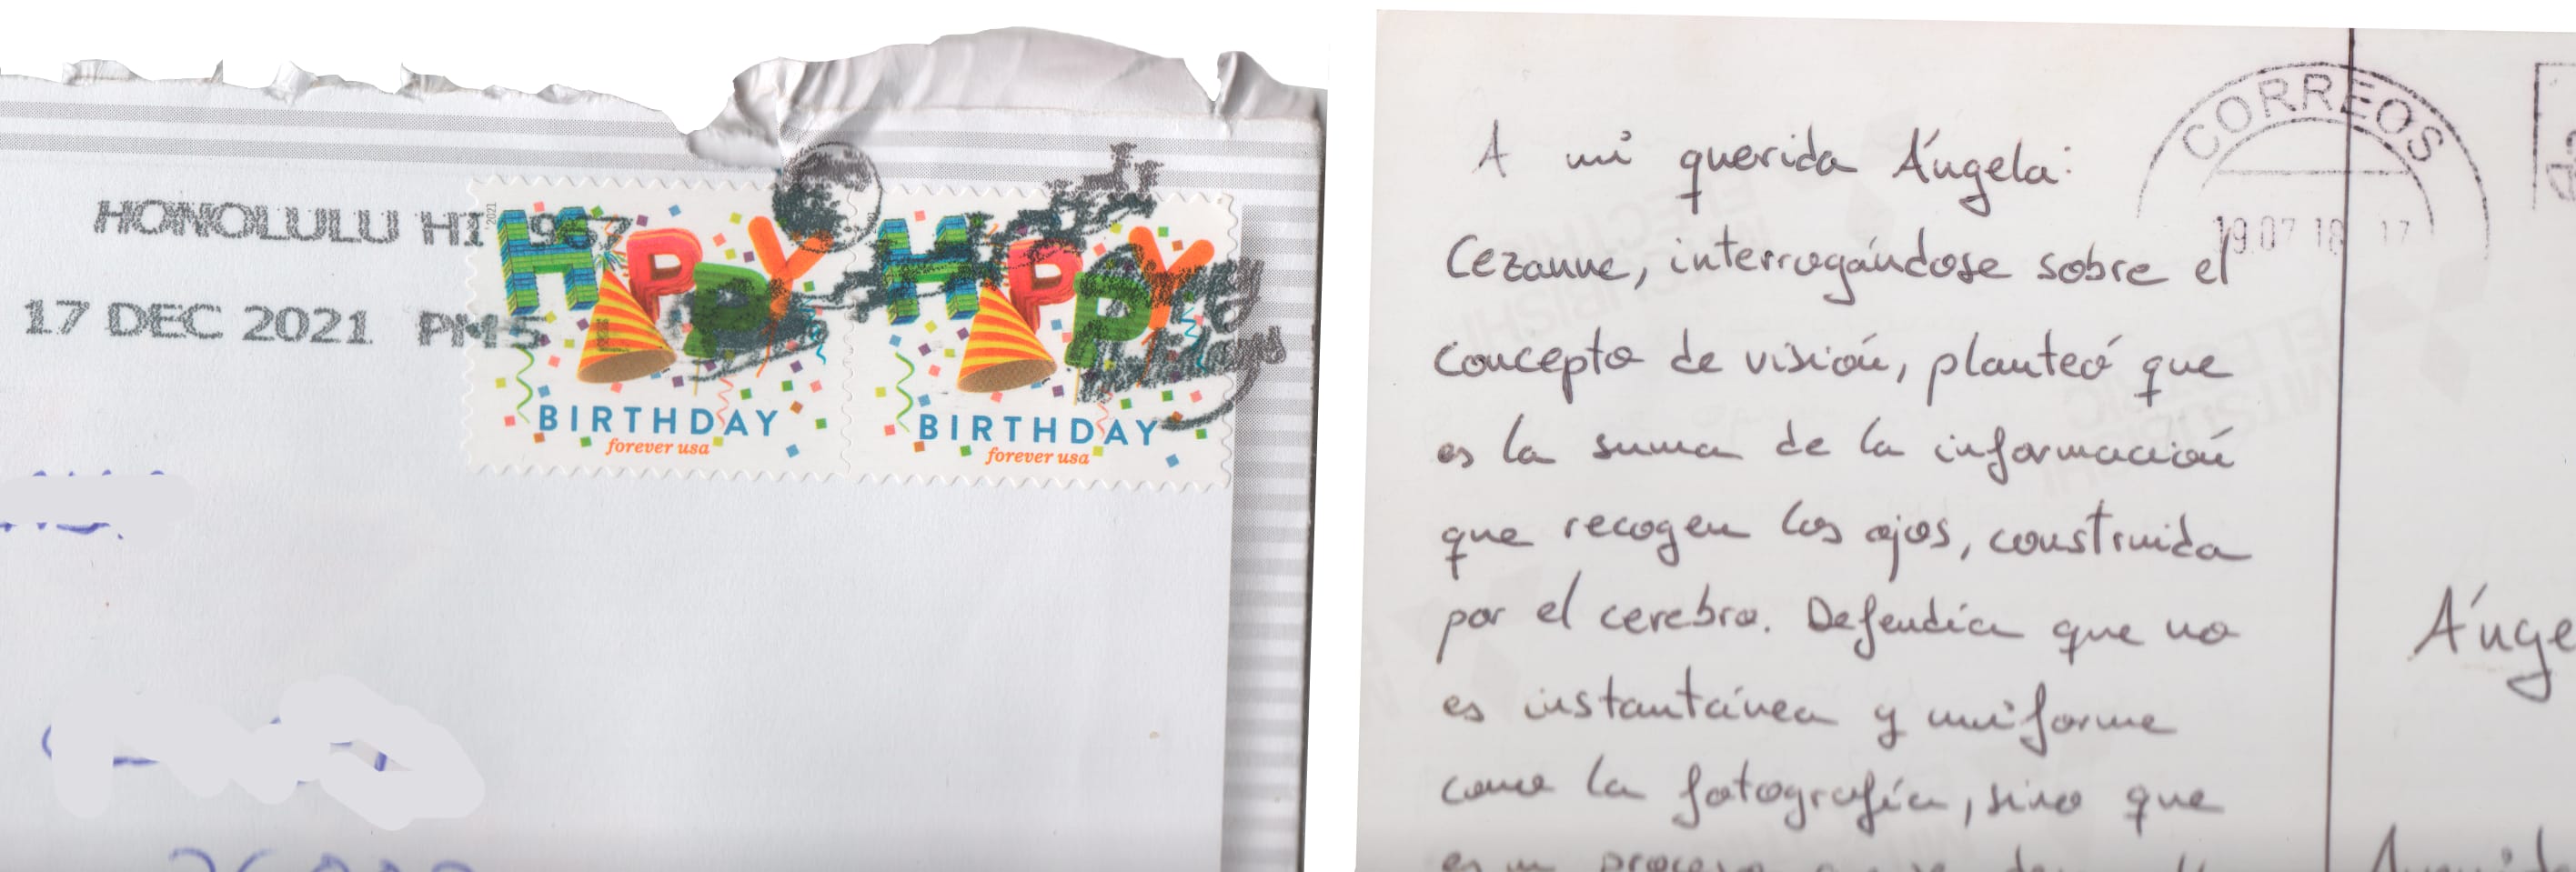 HONOLULU HI 967
17 DEC 2021 PM 5
2021
HAPPY
BIRTHDAY
forever usa
HAPPY
BIRTHDAY
forever usa
CORREOS
19.07 18 17
A mi querida Ángela:
Cezanne, interrogándose sobre el
concepto de visión, planteó que
es la suma de la información
que recogen los ojos, construida
por el cerebro. Defendía que no
es instantánea y uniforme
como la fotografía, sino que
es un proceso que se
Ánge